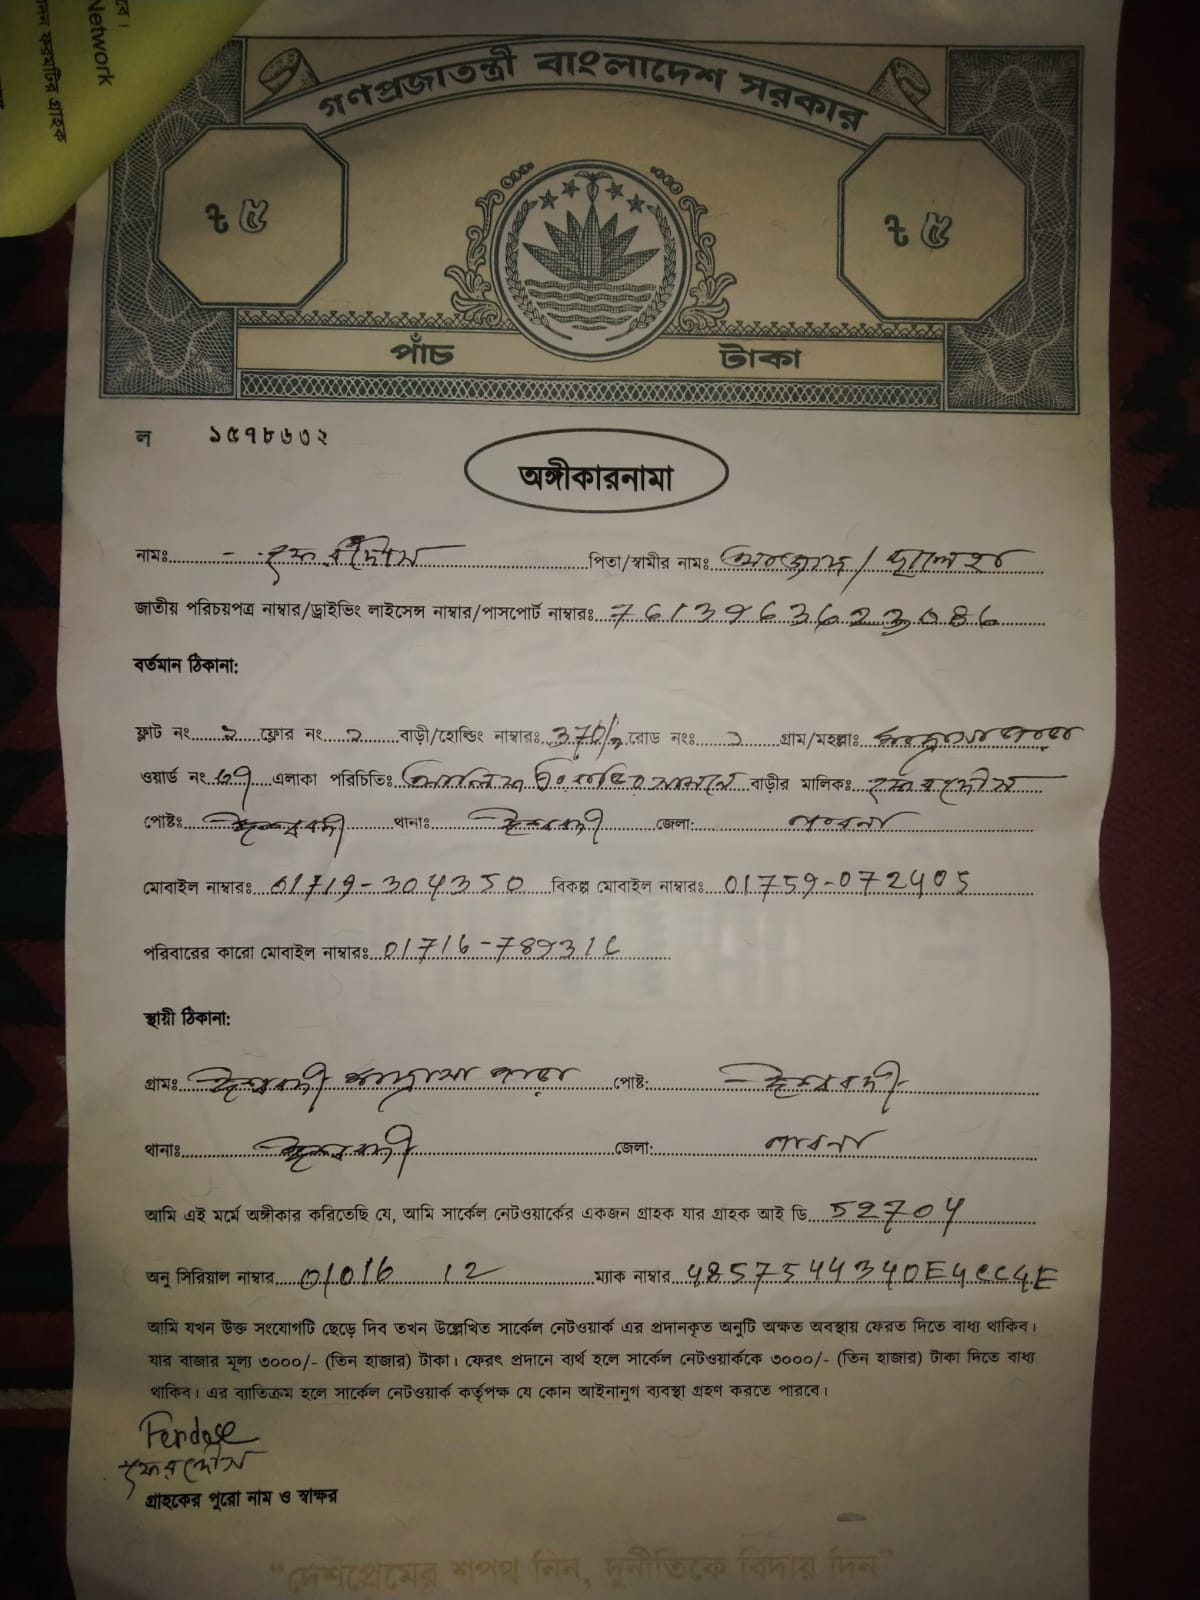 বে।
Network
দেন ফরমটির গ্রাহক
গণপ্রজাতন্ত্রী বাংলাদেশ সরকার
ট ৫ ট ৫
পাঁচ টাকা
ল ১৫৭৮৬৩২
অঙ্গীকারনামা
নামঃ ফেরদৌস পিতা/স্বামীর নামঃ আজাদ / ছালেহা
জাতীয় পরিচয়পত্র নাম্বার/ড্রাইভিং লাইসেন্স নাম্বার/পাসপোর্ট নাম্বারঃ 7613963623086
বর্তমান ঠিকানা:
ফ্লাট নং ২ ফ্লোর নং ২ বাড়ী/হোল্ডিং নাম্বারঃ 370/ রোড নংঃ ১ গ্রাম/মহল্লাঃ মাদ্রাসা পাড়া
ওয়ার্ড নং এলাকা পরিচিতিঃ আলিয়া সামনে বাড়ীর মালিকঃ ফেরদৌস
পোষ্টঃ ঈশ্বরদী থানাঃ ঈশ্বরদী জেলা: পাবনা
মোবাইল নাম্বারঃ 01719-304350 বিকল্প মোবাইল নাম্বারঃ 01759-072405
পরিবারের কারো মোবাইল নাম্বারঃ 01716-789316
স্থায়ী ঠিকানা:
গ্রামঃ ঈশ্বরদী মাদ্রাসা পাড়া পোষ্ট: ঈশ্বরদী
থানাঃ ঈশ্বরদী জেলা: পাবনা
আমি এই মর্মে অঙ্গীকার করিতেছি যে, আমি সার্কেল নেটওয়ার্কের একজন গ্রাহক যার গ্রাহক আই ডি 52704
অনু সিরিয়াল নাম্বার 01016 12 ম্যাক নাম্বার 485754434DE4CC4E
আমি যখন উক্ত সংযোগটি ছেড়ে দিব তখন উল্লেখিত সার্কেল নেটওয়ার্ক এর প্রদানকৃত অনুটি অক্ষত অবস্থায় ফেরত দিতে বাধ্য থাকিব।
যার বাজার মূল্য ৩০০০/- (তিন হাজার) টাকা। ফেরৎ প্রদানে ব্যর্থ হলে সার্কেল নেটওয়ার্ককে ৩০০০/- (তিন হাজার) টাকা দিতে বাধ্য
থাকিব। এর ব্যাতিক্রম হলে সার্কেল নেটওয়ার্ক কর্তৃপক্ষ যে কোন আইনানুগ ব্যবস্থা গ্রহণ করতে পারবে।
Ferdose
ফেরদৌস
গ্রাহকের পুরো নাম ও স্বাক্ষর
"দেশপ্রেমের শপথ নিন, দুর্নীতিকে বিদায় দিন"